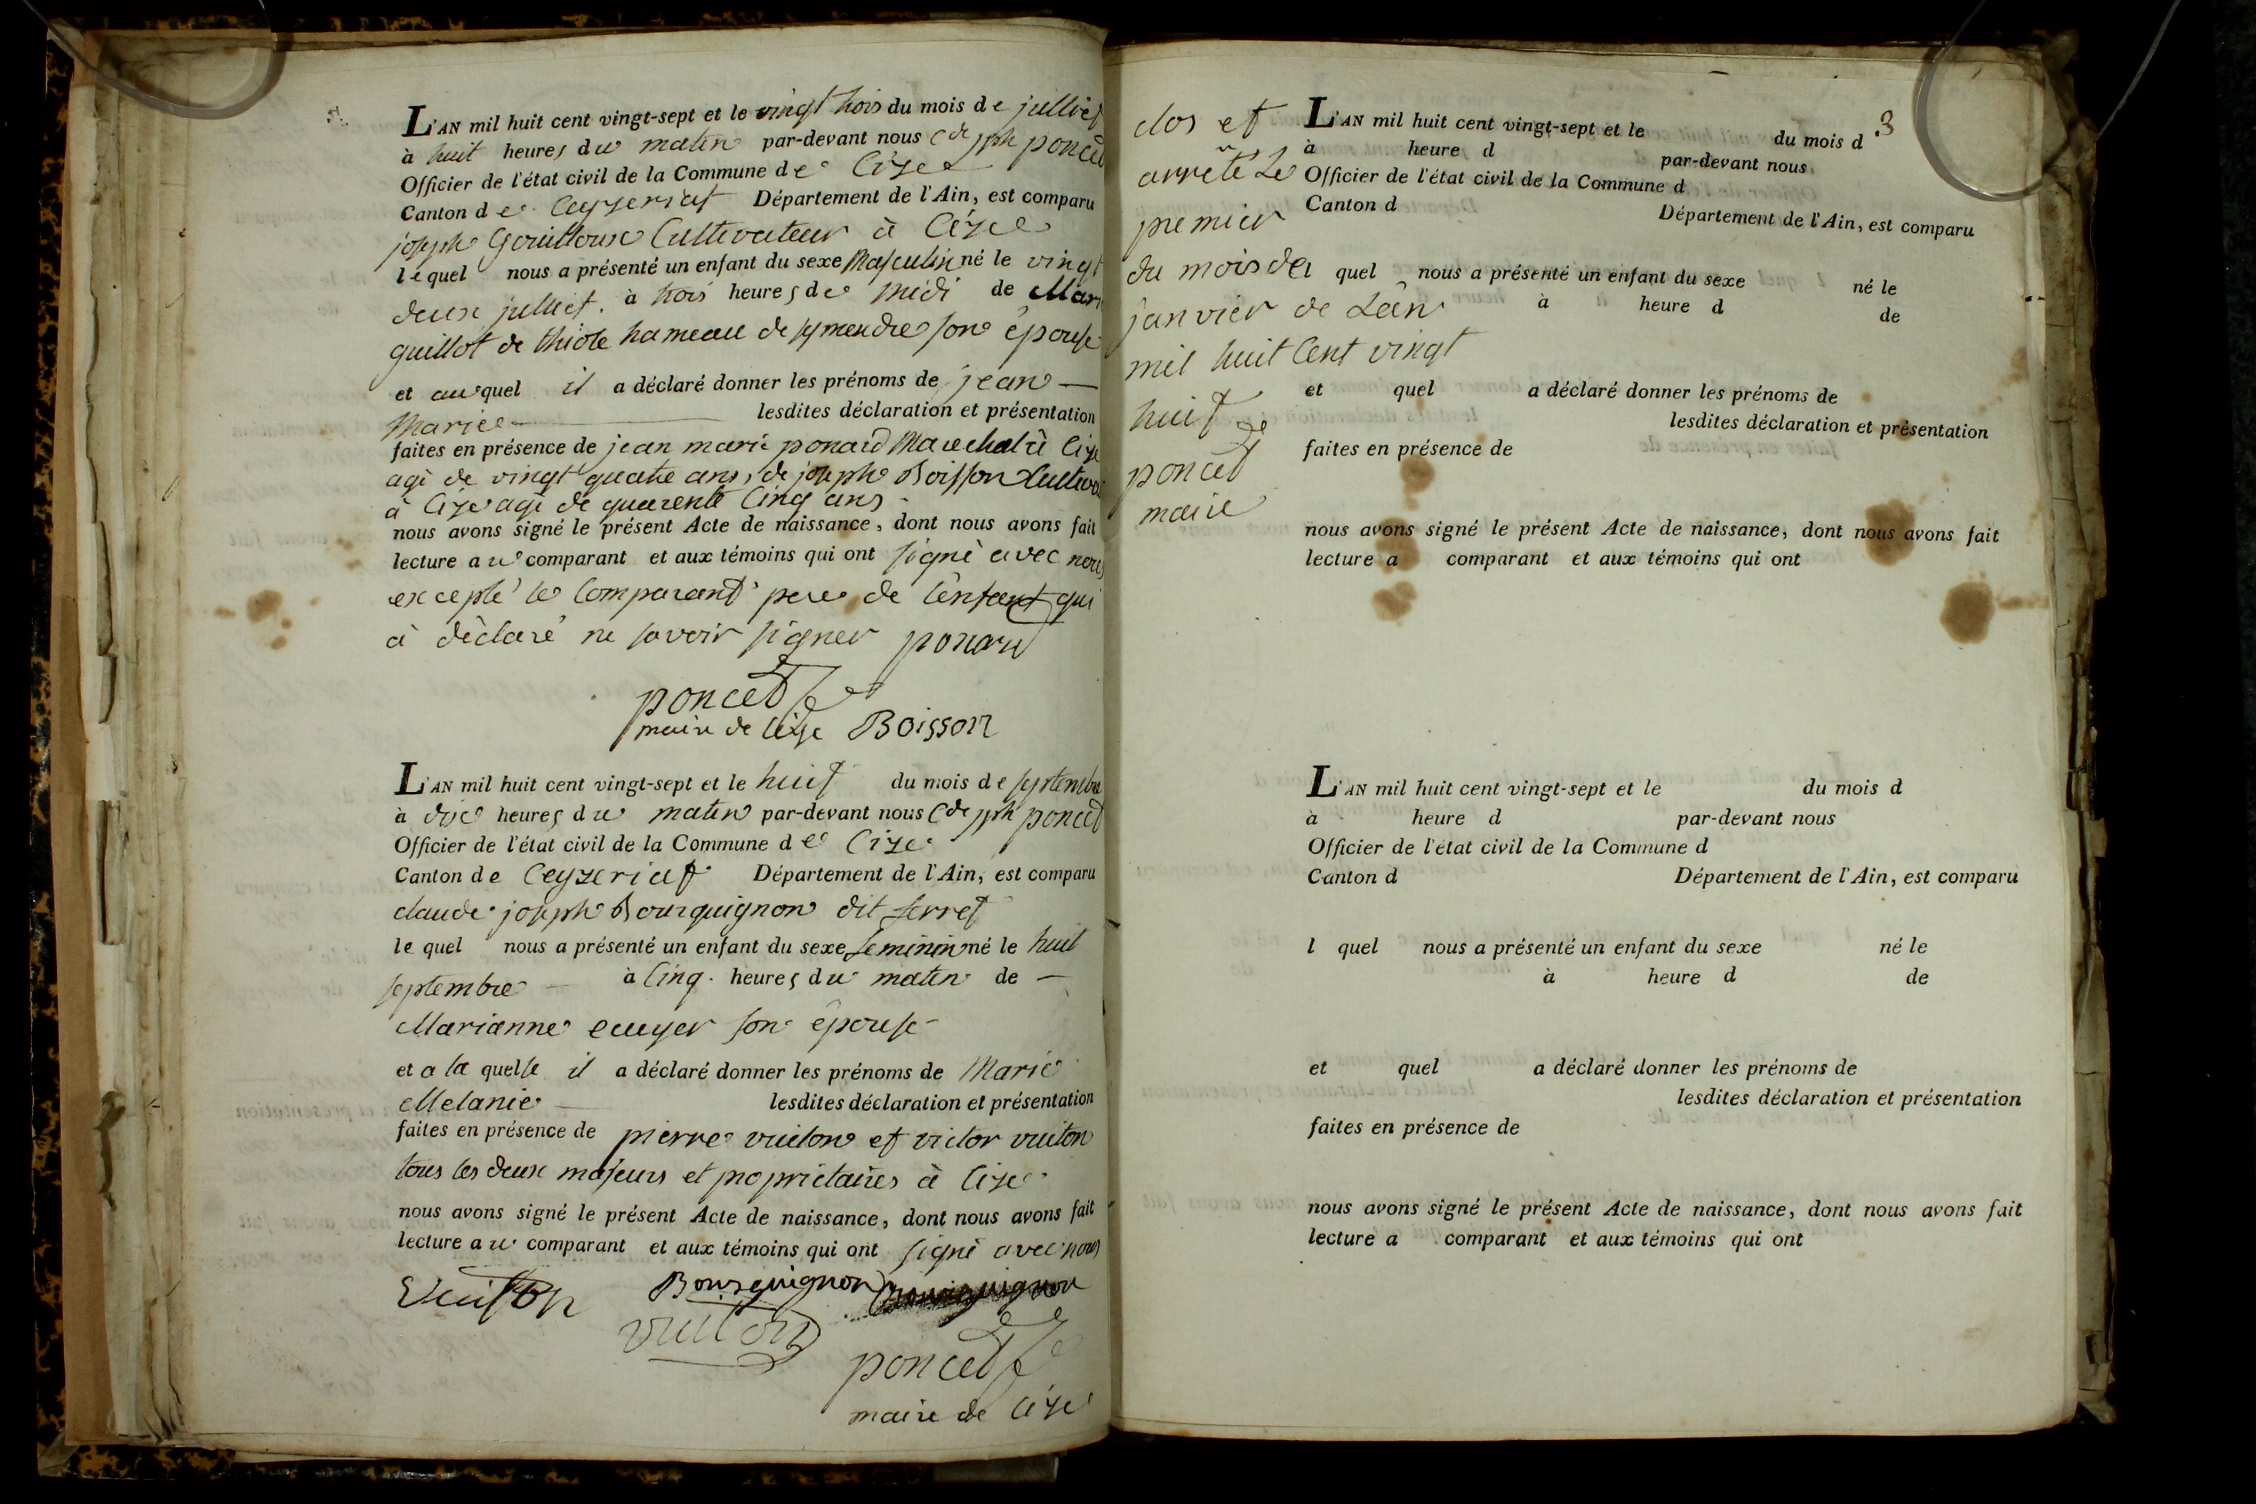 L'AN mil huit cent vingt-sept et le vingt trois du mois de julliet
à huit heures du matin par-devant nous Cde jph poncet
Officier de l'état civil de la Commune de Cize
Canton de Ceyzeriat Département de l'Ain, est comparu
joseph Gouilloux Cultivateur à Cize
lequel nous a présenté un enfant du sexe Masculin né le vingt
deux julliet à trois heures de midi de Marie
guillot de thiole hameau de symandre son épouse
et auquel il a déclaré donner les prénoms de jean
Marie lesdites déclaration et présentation
faites en présence de jean marie ponard Marechal à Cize
agé de vingt quatre ans, de joseph Boisson Cultiva
à Cize agé de quarente Cinq ans
nous avons signé le présent Acte de naissance, dont nous avons fait
lecture au comparant et aux témoins qui ont signé avec nous
excepté le Comparant pere de l'enfant qui
à déclaré ne savoir signer ponard
poncet
maire de Cize Boisson
L'AN mil huit cent vingt-sept et le huit du mois de septembre
à dix heures du matin par-devant nous Cde jph poncet
Officier de l'état civil de la Commune de Cize
Canton de Ceyzeriat Département de l'Ain, est comparu
claude joseph Bourguignon dit ferret
le quel nous a présenté un enfant du sexe feminin né le huit
septembre à Cinq heures du matin de
Marianne ecuyer son épouse
et a la quelle il a déclaré donner les prénoms de Marie
Melanie lesdites déclaration et présentation
faites en présence de pierre vuiton et victor vuiton
tous les deux majeurs et propriétaires à Cize
nous avons signé le présent Acte de naissance, dont nous avons fait
lecture au comparant et aux témoins qui ont signé avec nous
Vuiton Bourguignon Bourguignon
vuiton
poncet
maire de Cize
3
clos et
arrêté Le
premier
du mois de
janvier de Lân
mil huit Cent vingt
huit
poncet
maire
L'AN mil huit cent vingt-sept et le du mois d
à heure d par-devant nous
Officier de l'état civil de la Commune d
Canton d Département de l'Ain, est comparu
l quel nous a présenté un enfant du sexe né le
à heure d de
et quel a déclaré donner les prénoms de
lesdites déclaration et présentation
faites en présence de
nous avons signé le présent Acte de naissance, dont nous avons fait
lecture a comparant et aux témoins qui ont
L'AN mil huit cent vingt-sept et le du mois d
à heure d par-devant nous
Officier de l'état civil de la Commune d
Canton d Département de l'Ain, est comparu
l quel nous a présenté un enfant du sexe né le
à heure d de
et quel a déclaré donner les prénoms de
lesdites déclaration et présentation
faites en présence de
nous avons signé le présent Acte de naissance, dont nous avons fait
lecture a comparant et aux témoins qui ont